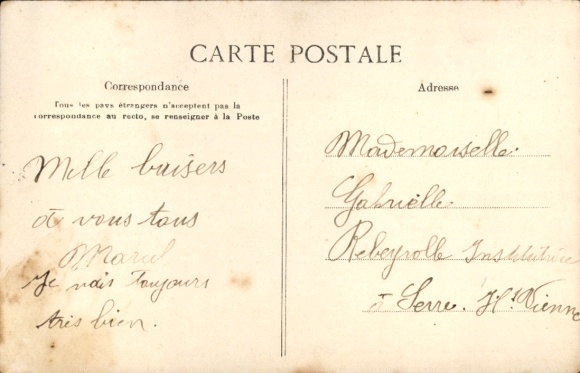 CARTE POSTALE
Correspondance
Tous les pays étrangers n'acceptent pas la
correspondance au recto, se renseigner à la Poste
Mille baisers
à vous tous
Marcel
Je vais toujours
très bien.
Adresse
Mademoiselle
Gabrielle
Rebeyrolle Institutrice
à Serre. Hte Vienne